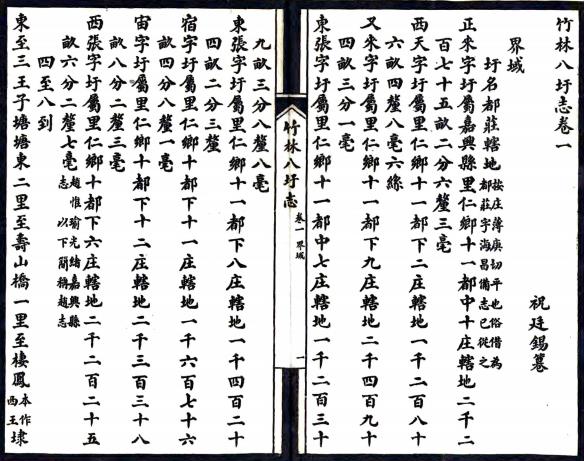 竹林八圩志卷一
祝廷錫纂
界域
圩名都莊轄地按庄薄庚切平也俗借為都莊字海昌備志已從之
正宋字圩屬嘉興縣里仁鄉十一都中十庄轄地二千二
百七十五畝二分六釐三毫
西天字圩屬里仁鄉十一都下二庄轄地一千二百八十
六畝四釐八毫六絲
又宋字圩屬里仁鄉十一都下九庄轄地二千四百九十
四畝三分一毫
東張字圩屬里仁鄉十一都中七庄轄地一千二百三十
竹林八圩志
卷一 界域
一
九畝三分八釐八毫
東張字圩屬里仁鄉十一都下八庄轄地一千四百二十
四畝二分三釐
宿字圩屬里仁鄉十都下十一庄轄地一千六百七十六
畝四分八釐一毫
宙字圩屬里仁鄉十都下十二庄轄地二千三百三十八
畝八分二釐三毫
西張字圩屬里仁鄉十都下六庄轄地二千二百二十五
畝六分二釐七毫趙惟瑜光緒嘉興縣志以下簡稱趙志
四至八到
東至三王子塘塘東二里至壽山橋一里至棲鳳本作西王埭